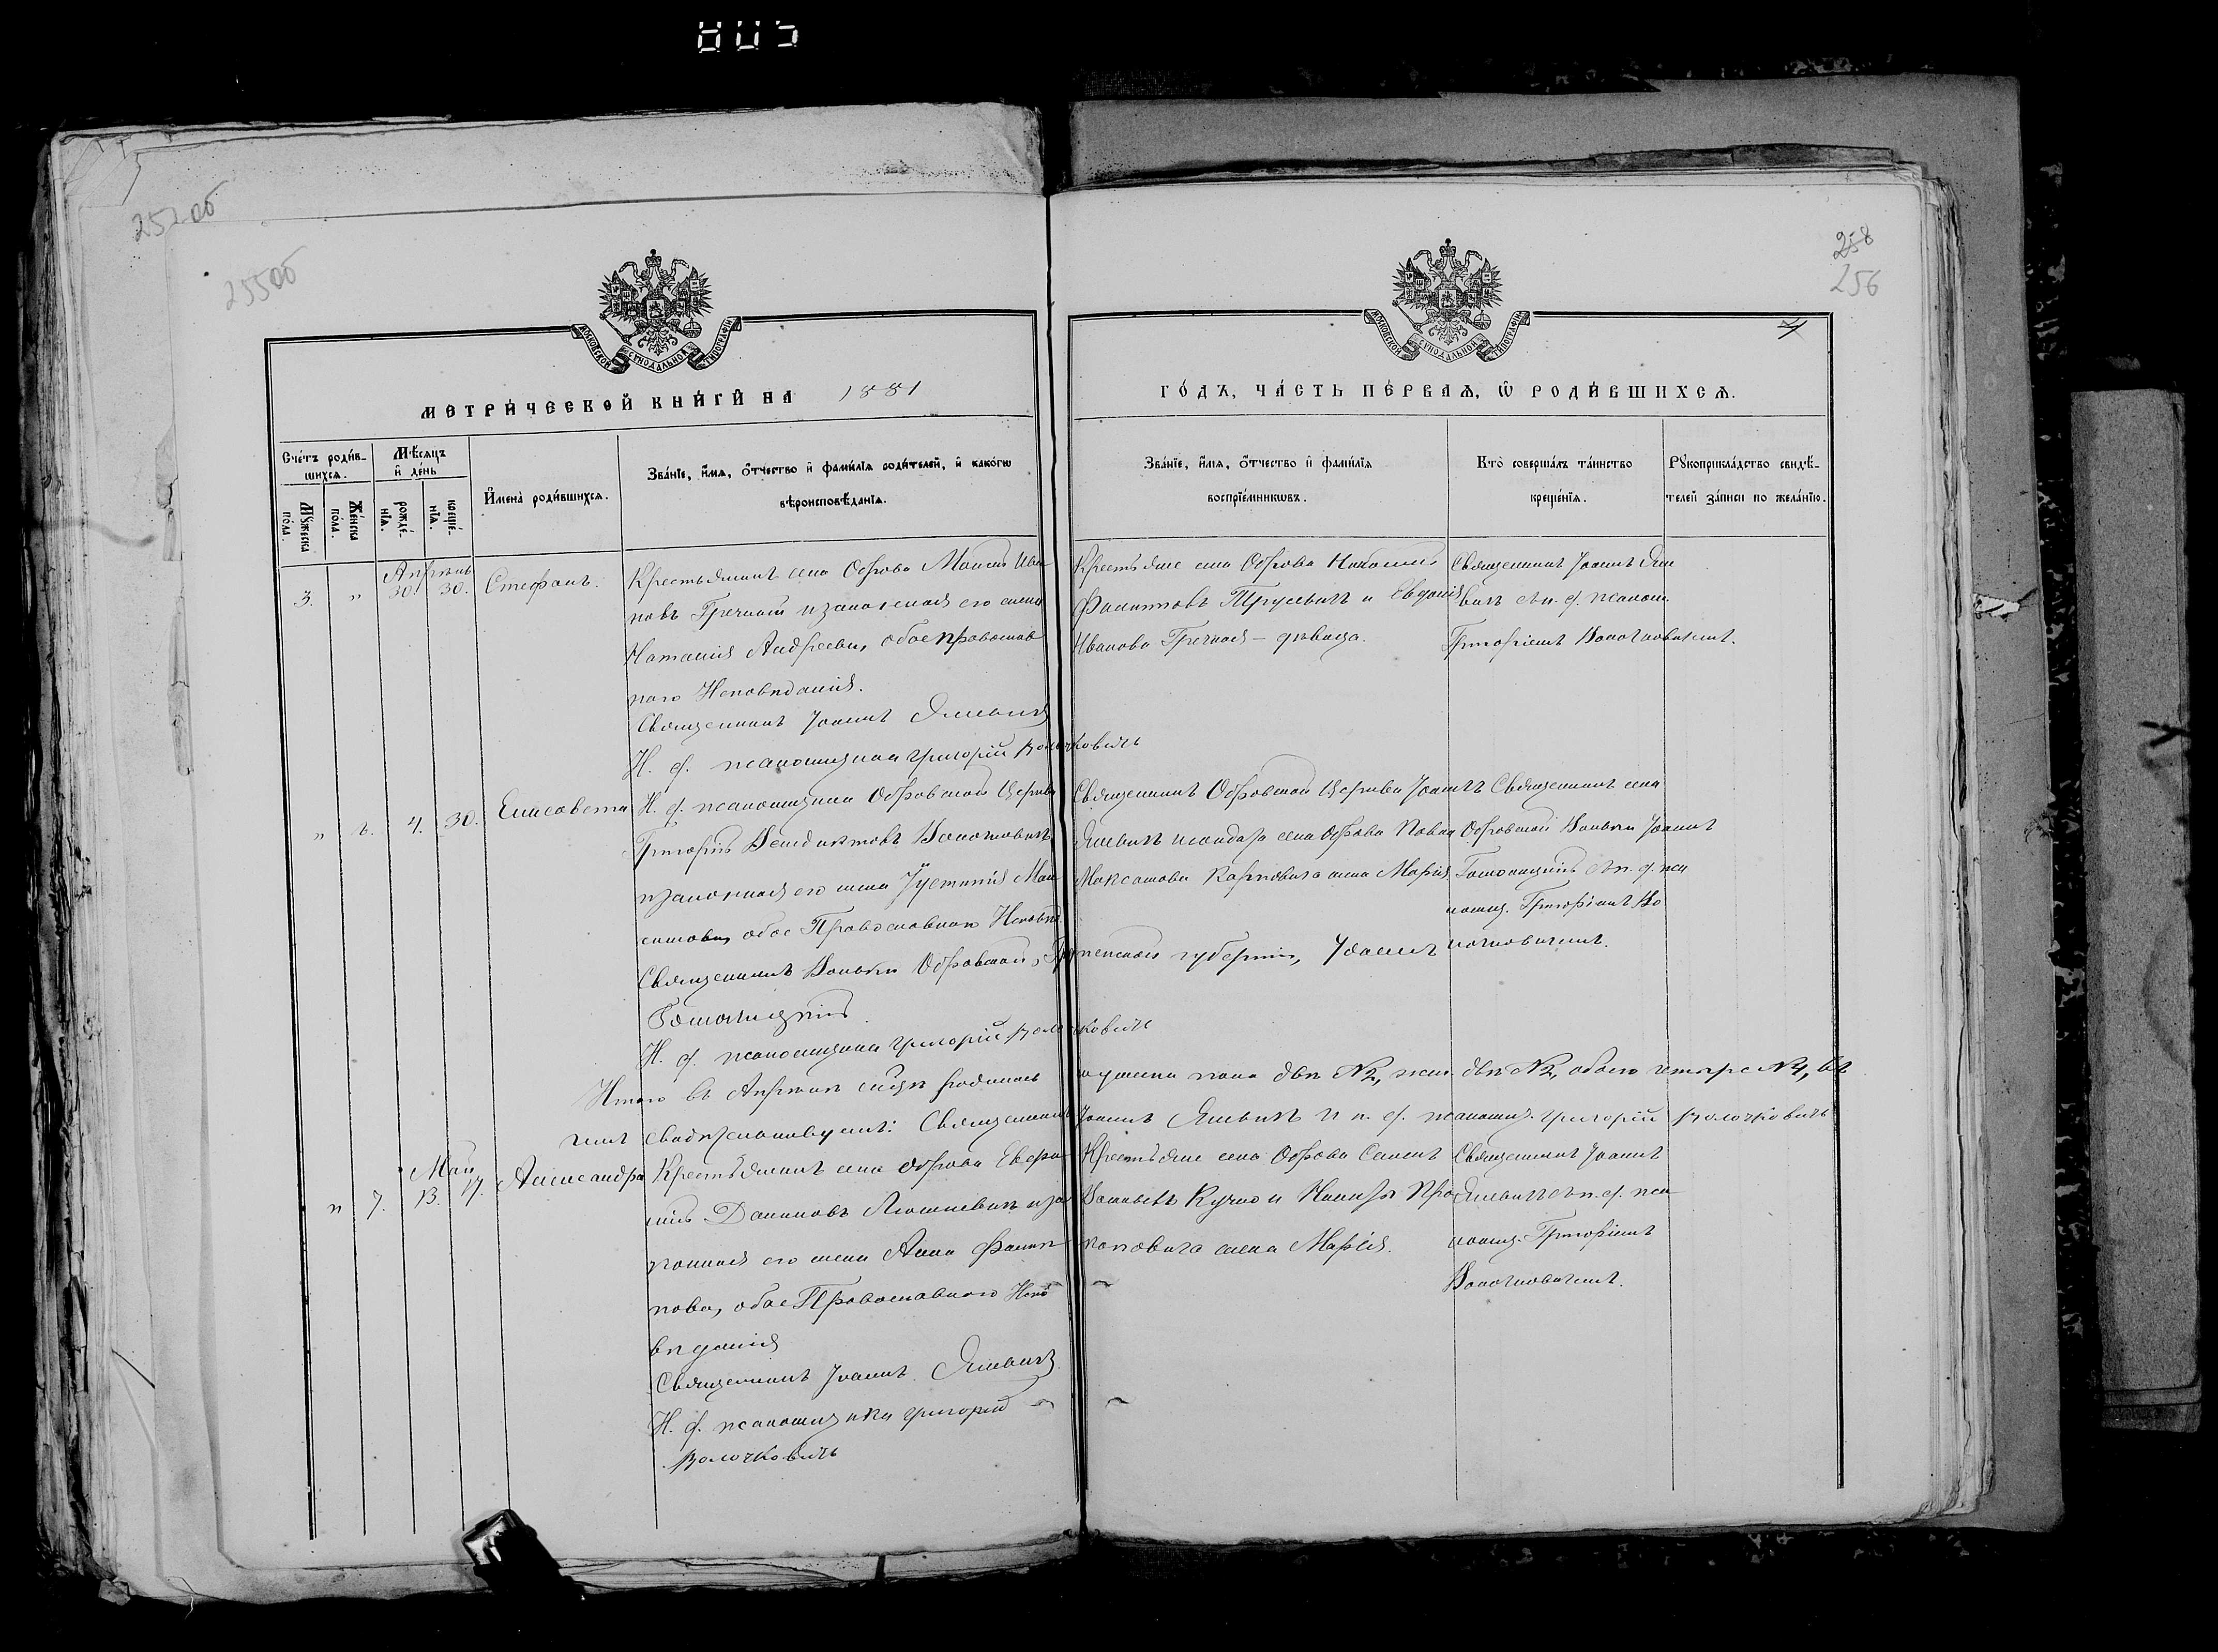 805
252об
255об
258
256
4
МОСКОВСКОЙ СѴНОДАЛЬНОЙ ТИПОГРАФІИ
МОСКОВСКОЙ СѴНОДАЛЬНОЙ ТИПОГРАФІИ
МЕТРИ́ЧЕСКОЙ КНИ́ГИ НА 1881
ГО́ДЪ, ЧА́СТЬ ПЕ́РВАЯ, Ѡ РОДИ́ВШИХСЯ.
Сче́тъ роди́в-
шихся.
Му́жеска по́ла.
Же́нска по́ла.
Мѣ́сяцъ и де́нь
рожде́-
нїя.
креще́-
нїя.
Имена̀ роди́вшихся.
Зва́нїе, и́мя, о́тчество и фами́лїя роди́телей, и како́гѡ
вѣроисповѣ́данїя.
Зва́нїе, и́мя, о́тчество и фами́лїя
воспрїе́мникѡвъ.
Кто̀ соверша́лъ та́инство
креще́нїя.
Рꙋкоприкла́дство свидѣ́-
телей за́писи по жела́нїю.
Апрѣль
3. " 30. 30. Стефанъ.
Крестьянинъ села Оброва Ива-
новъ Гречный и законная его жена
Наталія Андреева, обое православ
наго Исповѣданія.
Священникъ Іоаннъ
И. д. псаломщика Григорій Волочковичъ
Крестьяне села Оброва Николай
Филипповъ Трусевичъ и Евдокія
Иванова Гречная – дѣвица.
Священникъ Іоаннъ
съ и. д. псалом.
Григоріемъ Волочковичемъ.
" 2. 4. 30. Елисавета
И. д. псаломщика Обровской Церкви
Григорій Венедиктовъ Волочковичъ
и законная его жена Іустинія
обое Православнаго Исповѣд.
Священникъ Обровской, Гродненской губерніи, Іоаннъ
И. д. псаломщика Григорій Волочковичъ
Священникъ Обровской Церкви Іоаннъ
и села Оброва Павла
Максимова Карповича жена Марія
Священникъ села
Обровской Іоаннъ
съ и. д. пса
ломщ. Григоріемъ Во
лочковичемъ.
Итого въ Апрѣлѣ мѣсяцѣ родилось мужеска пола два №2, жен. два №2, обоего четыре №4, въ
чемъ свидѣтельствуемъ: Священникъ Іоаннъ и и. д. псаломщ. Григорій Волочковичъ
Май
" 7. 13. 17. Александра
Крестьянинъ села Оброва
Даниловъ и за
конная его жена Анна Филип
пова, обое Православнаго Испо
вѣданія
Священникъ Іоаннъ
И. д. псаломщика Григорій
Волочковичъ
Крестьяне села Оброва Семенъ
Васильевъ Кучко и Про
коповича жена Марія.
Священникъ Іоаннъ
съ и. д. пса
ломщ. Григоріемъ
Волочковичемъ.